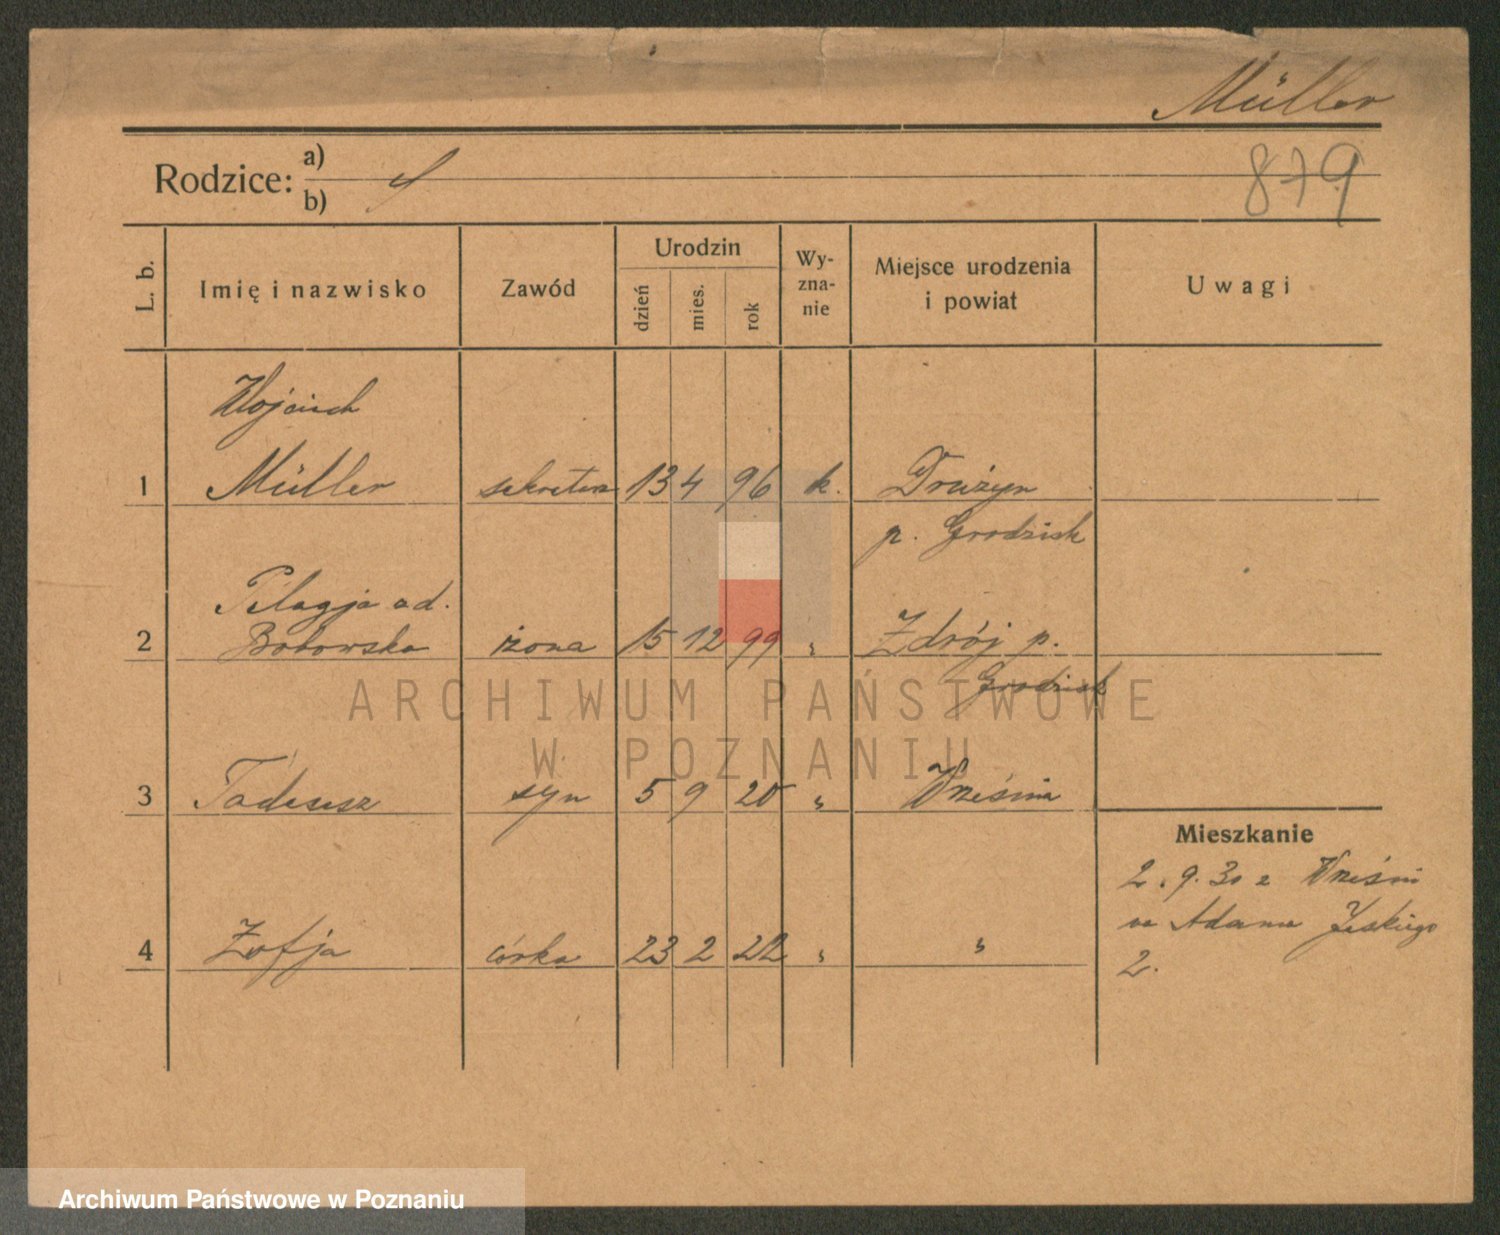 Müller
879
Rodzice: a)
b)
L. b.
Imię i nazwisko
Zawód
Urodzin
dzień
mies.
rok
Wy-
zna-
nie
Miejsce urodzenia
i powiat
Uwagi
Wojciech
1 Müller sekretarz 13 4 96 k. Drużyn
p. Grodzisk
Pelagja od.
2 Bobowska żona 15 12 99 " Zdrój p.
Grodzisk
3 Tadeusz syn 5 9 20 " Września
Mieszkanie
2. 9. 30 z Wrześni
4 Zofja córka 23 2 22 " "
2.
ARCHIWUM PAŃSTWOWE
W POZNANIU
Archiwum Państwowe w Poznaniu